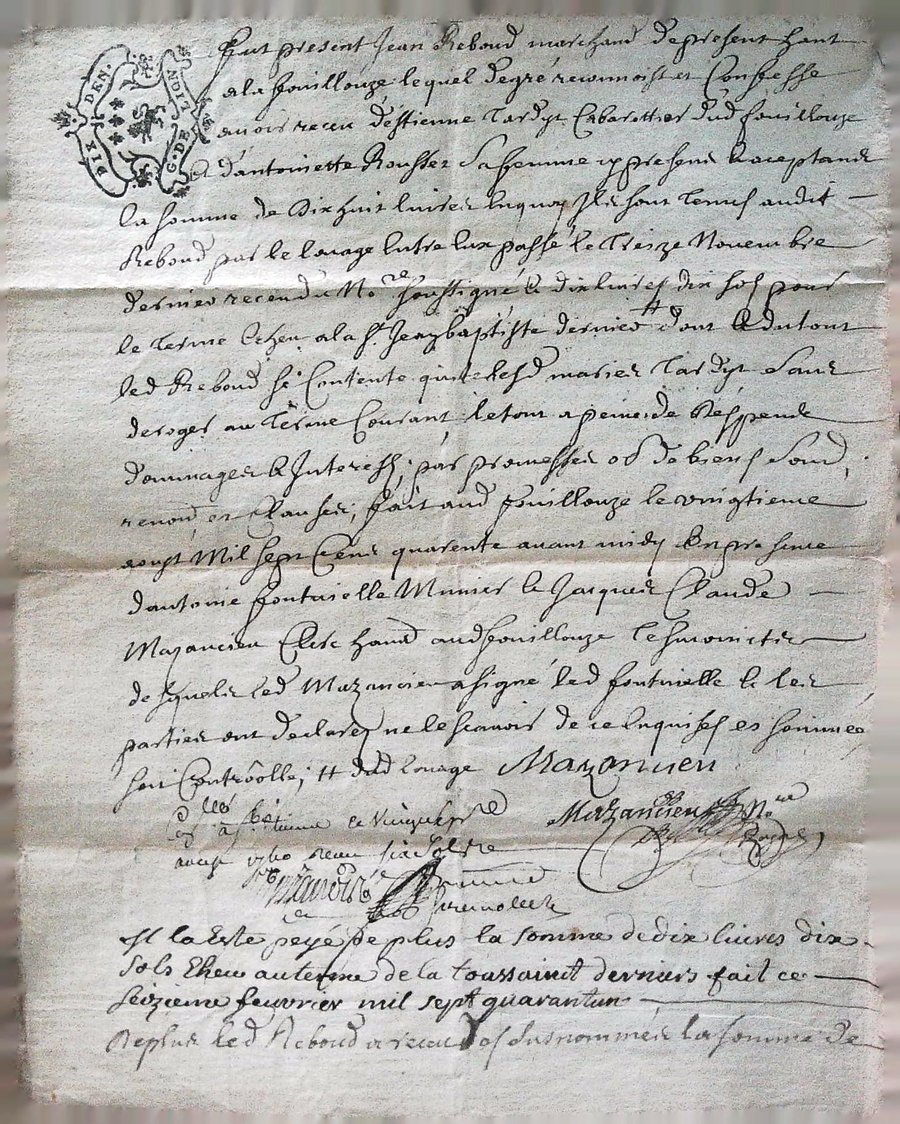 DIX DEN. NDIT G. DE
Fut present Jean Reboud marchand depresent hant
ala fouillouze lequel degré reconnoist et Confesse
avoir receu destienne Tardyt Cabarettier dud fouillouze
& dantoinette Rousset sa femme ypresens & aceptans
la somme de Dixhuit livres enquoy Ils sont Tenus audit
Reboud par le louage Entre eux passé le Treize Novembre
dernier receu du Nore soussigné & dix livres dix sols pour
le Terme Echeu ala st Jean baptiste dernier # dont & du tout
led Reboud se Contente quitte lesd mariés Tardyt sans
deroger au Terme Courant le tout a peine de Despends
dommages & Interests, par promesses ob de biens Soud,
renond, et Clauses, fait aud fouillouze le vingtieme
aoust Mil sept Cens quarente avant midy En presence
dantoine fontvielle Munier & Jacques Claude
Mazancieu Clerc hant aud fouillouze Tesmoins
desquels led Mazancieu a signé led fontvielle & les
parties ont declaré ne le scavoir de ce Enquises et sommées
soit Controolle, # dud louage Mazancieu
Mazancieux Nore
Collé a st Etienne le vingt
aoust 1740 receu six sols
Il la este peyé de plus la somme de dix livres dix
sols Eheu au terme de la toussainct derniers fait ce
seizieme feuvrier mil sept quarantun
De plus led Reboud a receu des surnommés la somme de